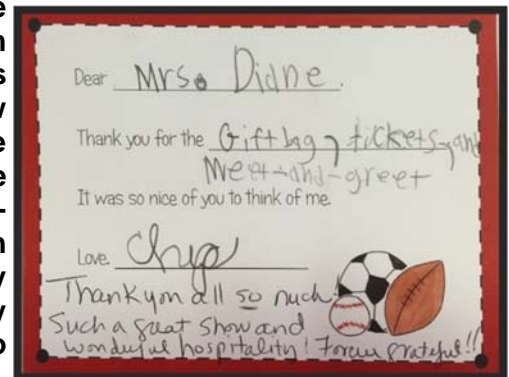 Dear Mrs. Diane.
Thank you for the Gift bag, tickets, and
Meet-and-greet
It was so nice of you to think of me.
Love, Chip
Thank you all so much!
Such a great show and
wonderful hospitality! Forever grateful!!